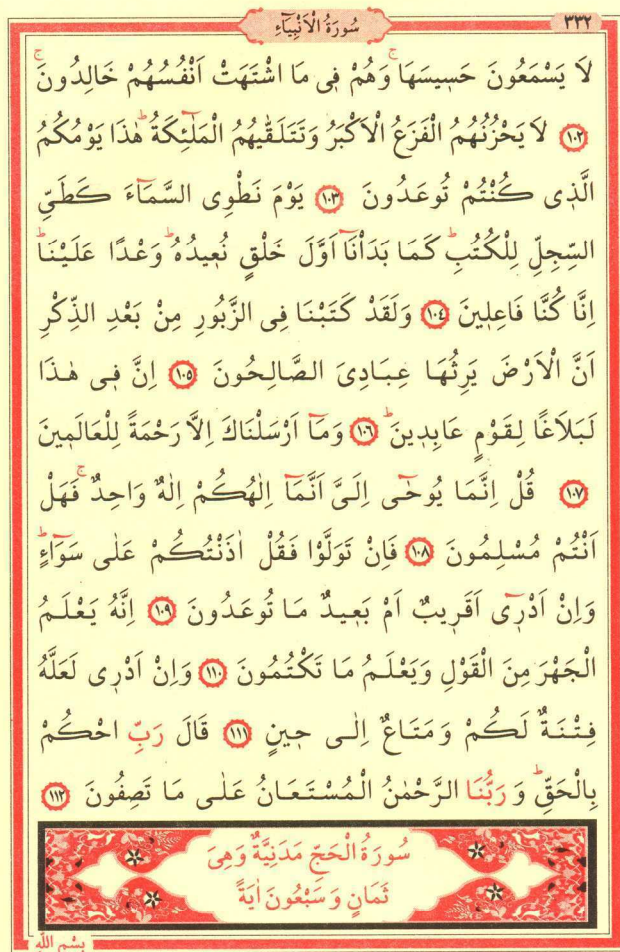 سُورَةُ الْاَنْبِيَٓاءِ
٣٣٢
لَا يَسْمَعُونَ حَس۪يسَهَاۚ وَهُمْ ف۪ي مَا اشْتَهَتْ اَنْفُسُهُمْ خَالِدُونَۚ
﴿١٠٢﴾ لَا يَحْزُنُهُمُ الْفَزَعُ الْاَكْبَرُ وَتَتَلَقّٰيهُمُ الْمَلٰٓئِكَةُۜ هٰذَا يَوْمُكُمُ
الَّذ۪ي كُنْتُمْ تُوعَدُونَ ﴿١٠٣﴾ يَوْمَ نَطْوِي السَّمَٓاءَ كَطَيِّ
السِّجِلِّ لِلْكُتُبِۜ كَمَا بَدَأْنَٓا اَوَّلَ خَلْقٍ نُع۪يدُهُۜ وَعْدًا عَلَيْنَاۜ
اِنَّا كُنَّا فَاعِل۪ينَ ﴿١٠٤﴾ وَلَقَدْ كَتَبْنَا فِي الزَّبُورِ مِنْ بَعْدِ الذِّكْرِ
اَنَّ الْاَرْضَ يَرِثُهَا عِبَادِيَ الصَّالِحُونَ ﴿١٠٥﴾ اِنَّ ف۪ي هٰذَا
لَبَلَاغًا لِقَوْمٍ عَابِد۪ينَۜ ﴿١٠٦﴾ وَمَٓا اَرْسَلْنَاكَ اِلَّا رَحْمَةً لِلْعَالَم۪ينَ
﴿١٠٧﴾ قُلْ اِنَّمَا يُوحٰٓى اِلَيَّ اَنَّمَٓا اِلٰهُكُمْ اِلٰهٌ وَاحِدٌۚ فَهَلْ
اَنْتُمْ مُسْلِمُونَ ﴿١٠٨﴾ فَاِنْ تَوَلَّوْا فَقُلْ اٰذَنْتُكُمْ عَلٰى سَوَٓاءٍۜ
وَاِنْ اَدْر۪ٓي اَقَر۪يبٌ اَمْ بَع۪يدٌ مَا تُوعَدُونَ ﴿١٠٩﴾ اِنَّهُ يَعْلَمُ
الْجَهْرَ مِنَ الْقَوْلِ وَيَعْلَمُ مَا تَكْتُمُونَ ﴿١١٠﴾ وَاِنْ اَدْر۪ي لَعَلَّهُ
فِتْنَةٌ لَكُمْ وَمَتَاعٌ اِلٰى ح۪ينٍ ﴿١١١﴾ قَالَ رَبِّ احْكُمْ
بِالْحَقِّۜ وَرَبُّنَا الرَّحْمٰنُ الْمُسْتَعَانُ عَلٰى مَا تَصِفُونَ ﴿١١٢﴾
سُورَةُ الْحَجِّ مَدَنِيَّةٌ وَهِيَ
ثَمَانٍ وَسَبْعُونَ اٰيَةً
بِسْمِ اللّٰهِ